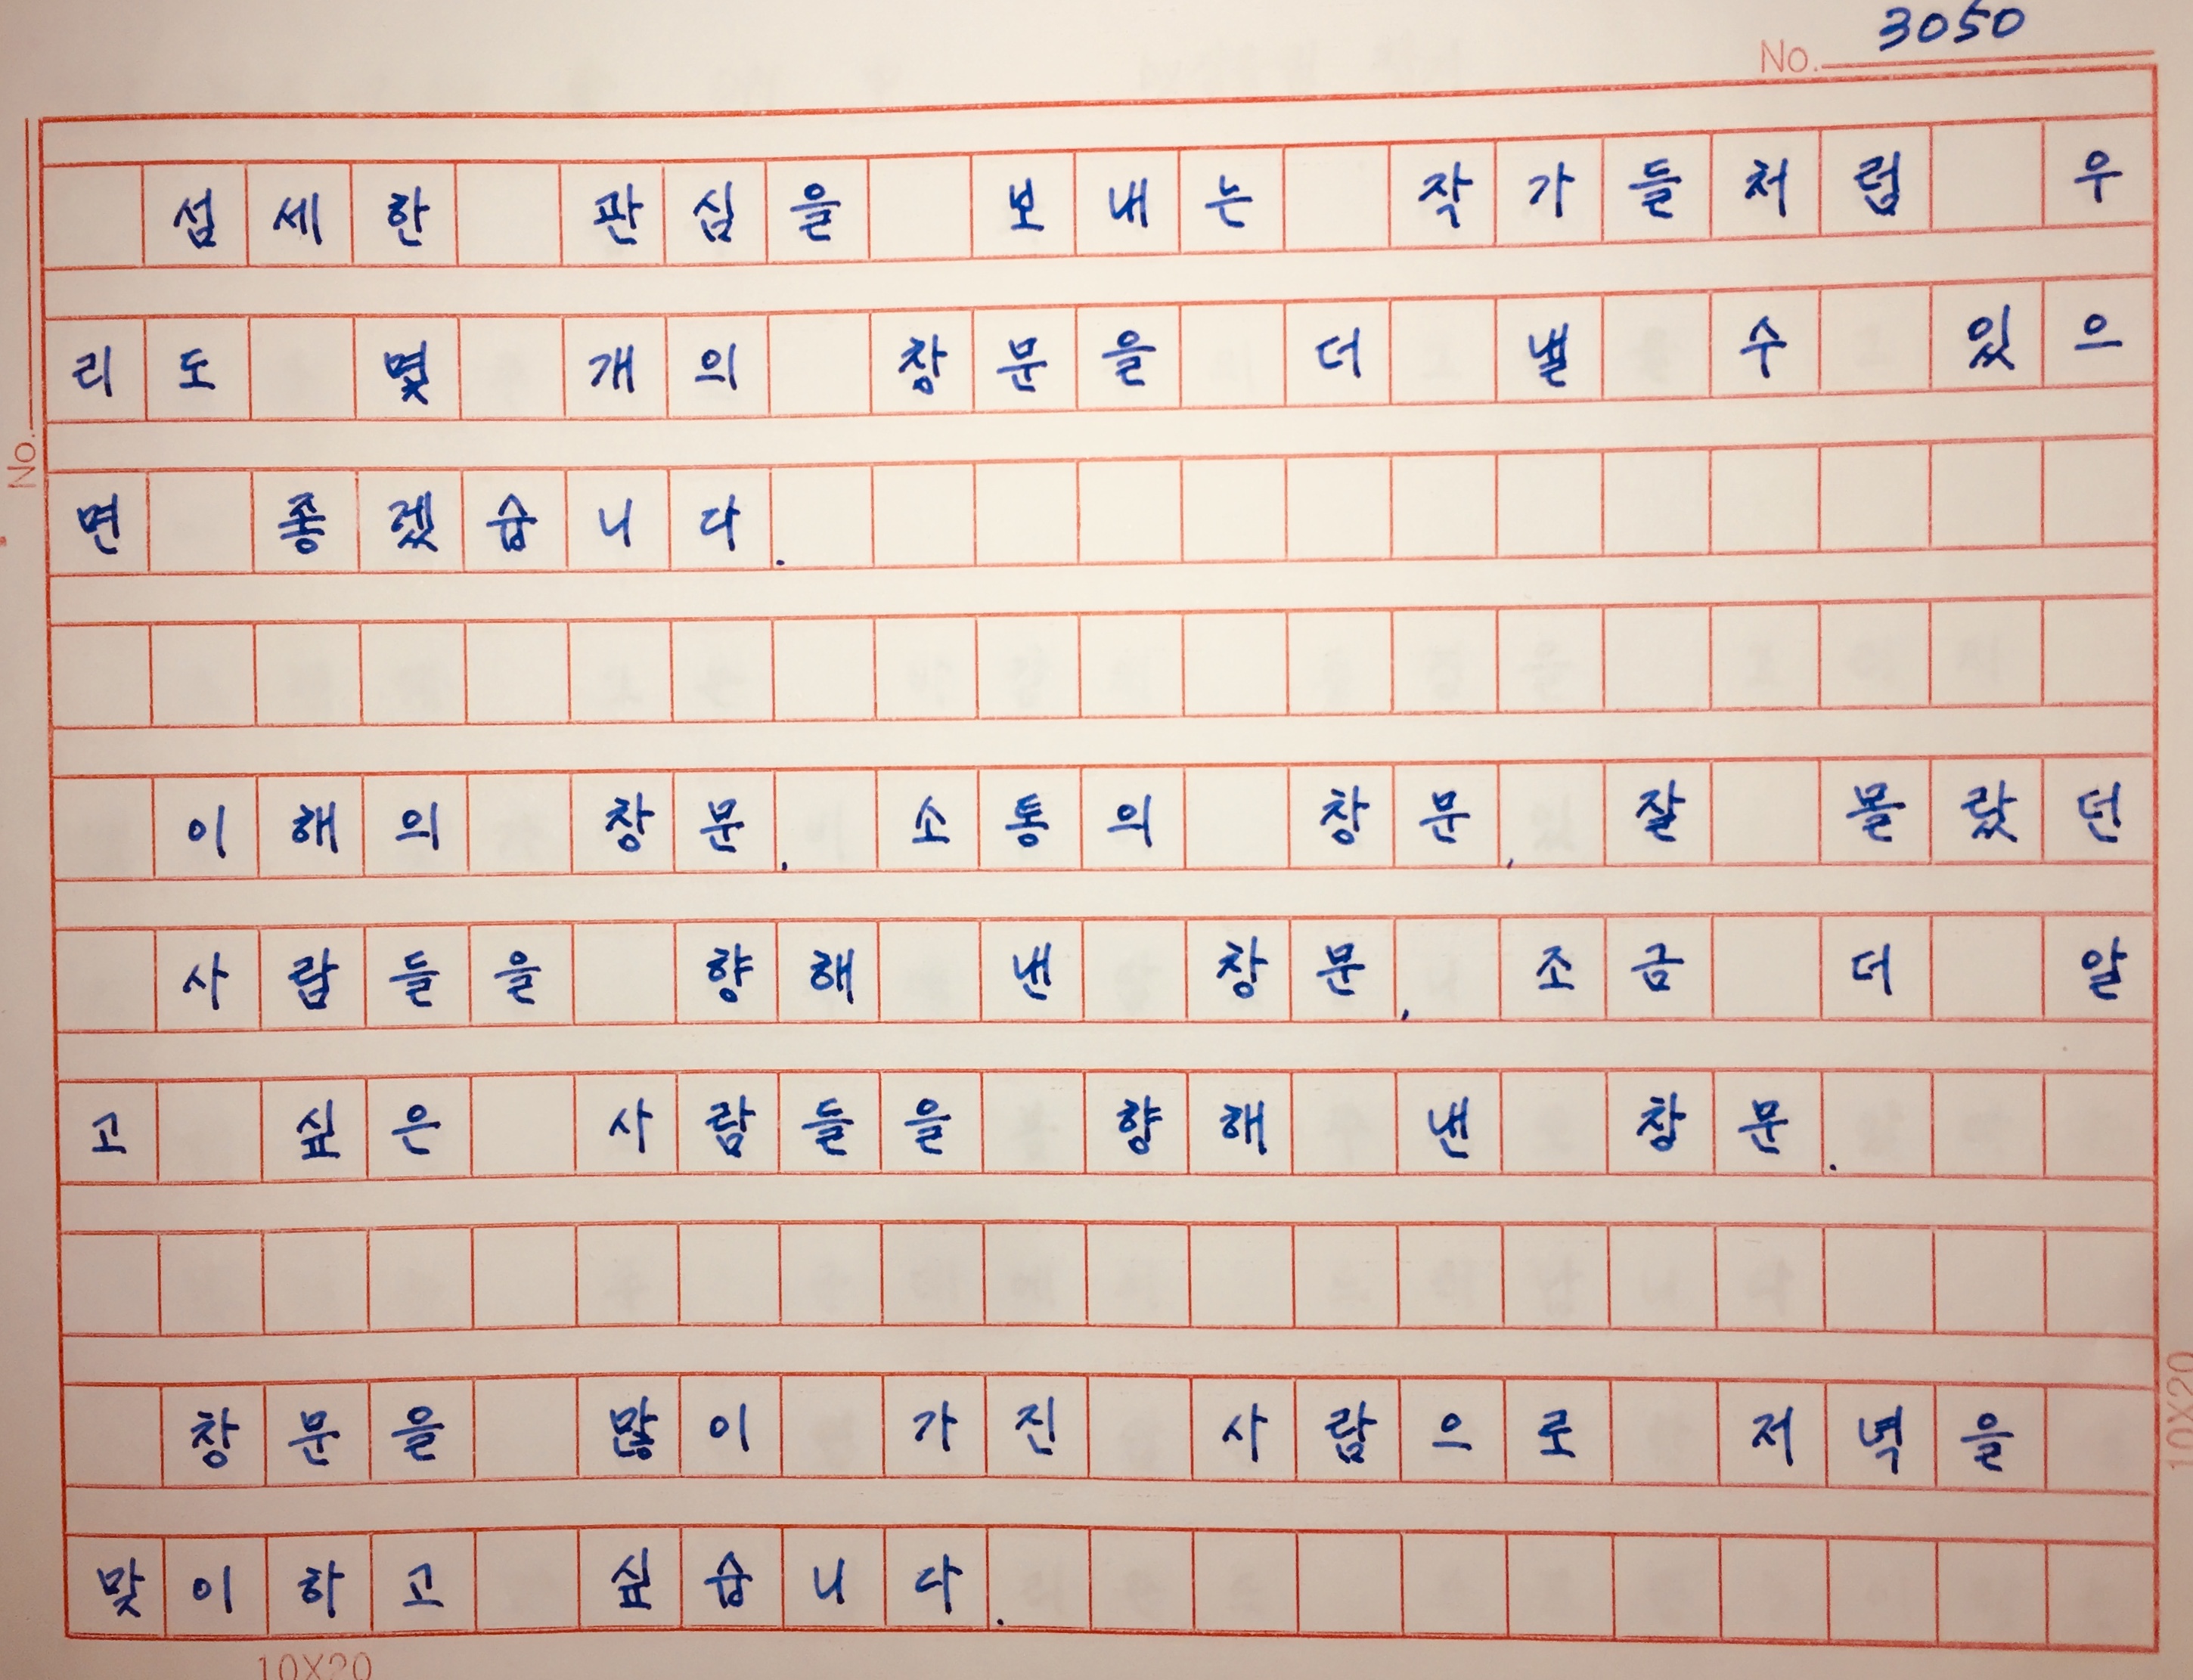 3050
No.
섬세한 관심을 보내는 작가들처럼 우
리도 몇 개의 창문을 더 낼 수 있으
면 좋겠습니다.
이해의 창문. 소통의 창문, 잘 몰랐던
사람들을 향해 낸 창문, 조금 더 알
고 싶은 사람들을 향해 낸 창문.
창문을 많이 가진 사람으로 저녁을
맞이하고 싶습니다.
No.
10X20
10X20